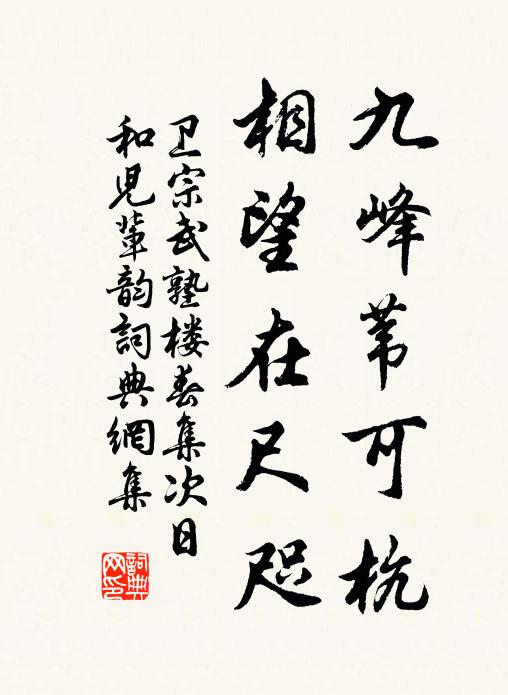 九峰苇可杭
相望在尺咫
卫宗武塾楼春集次日
和児輩韵詞典網集
詞典網印